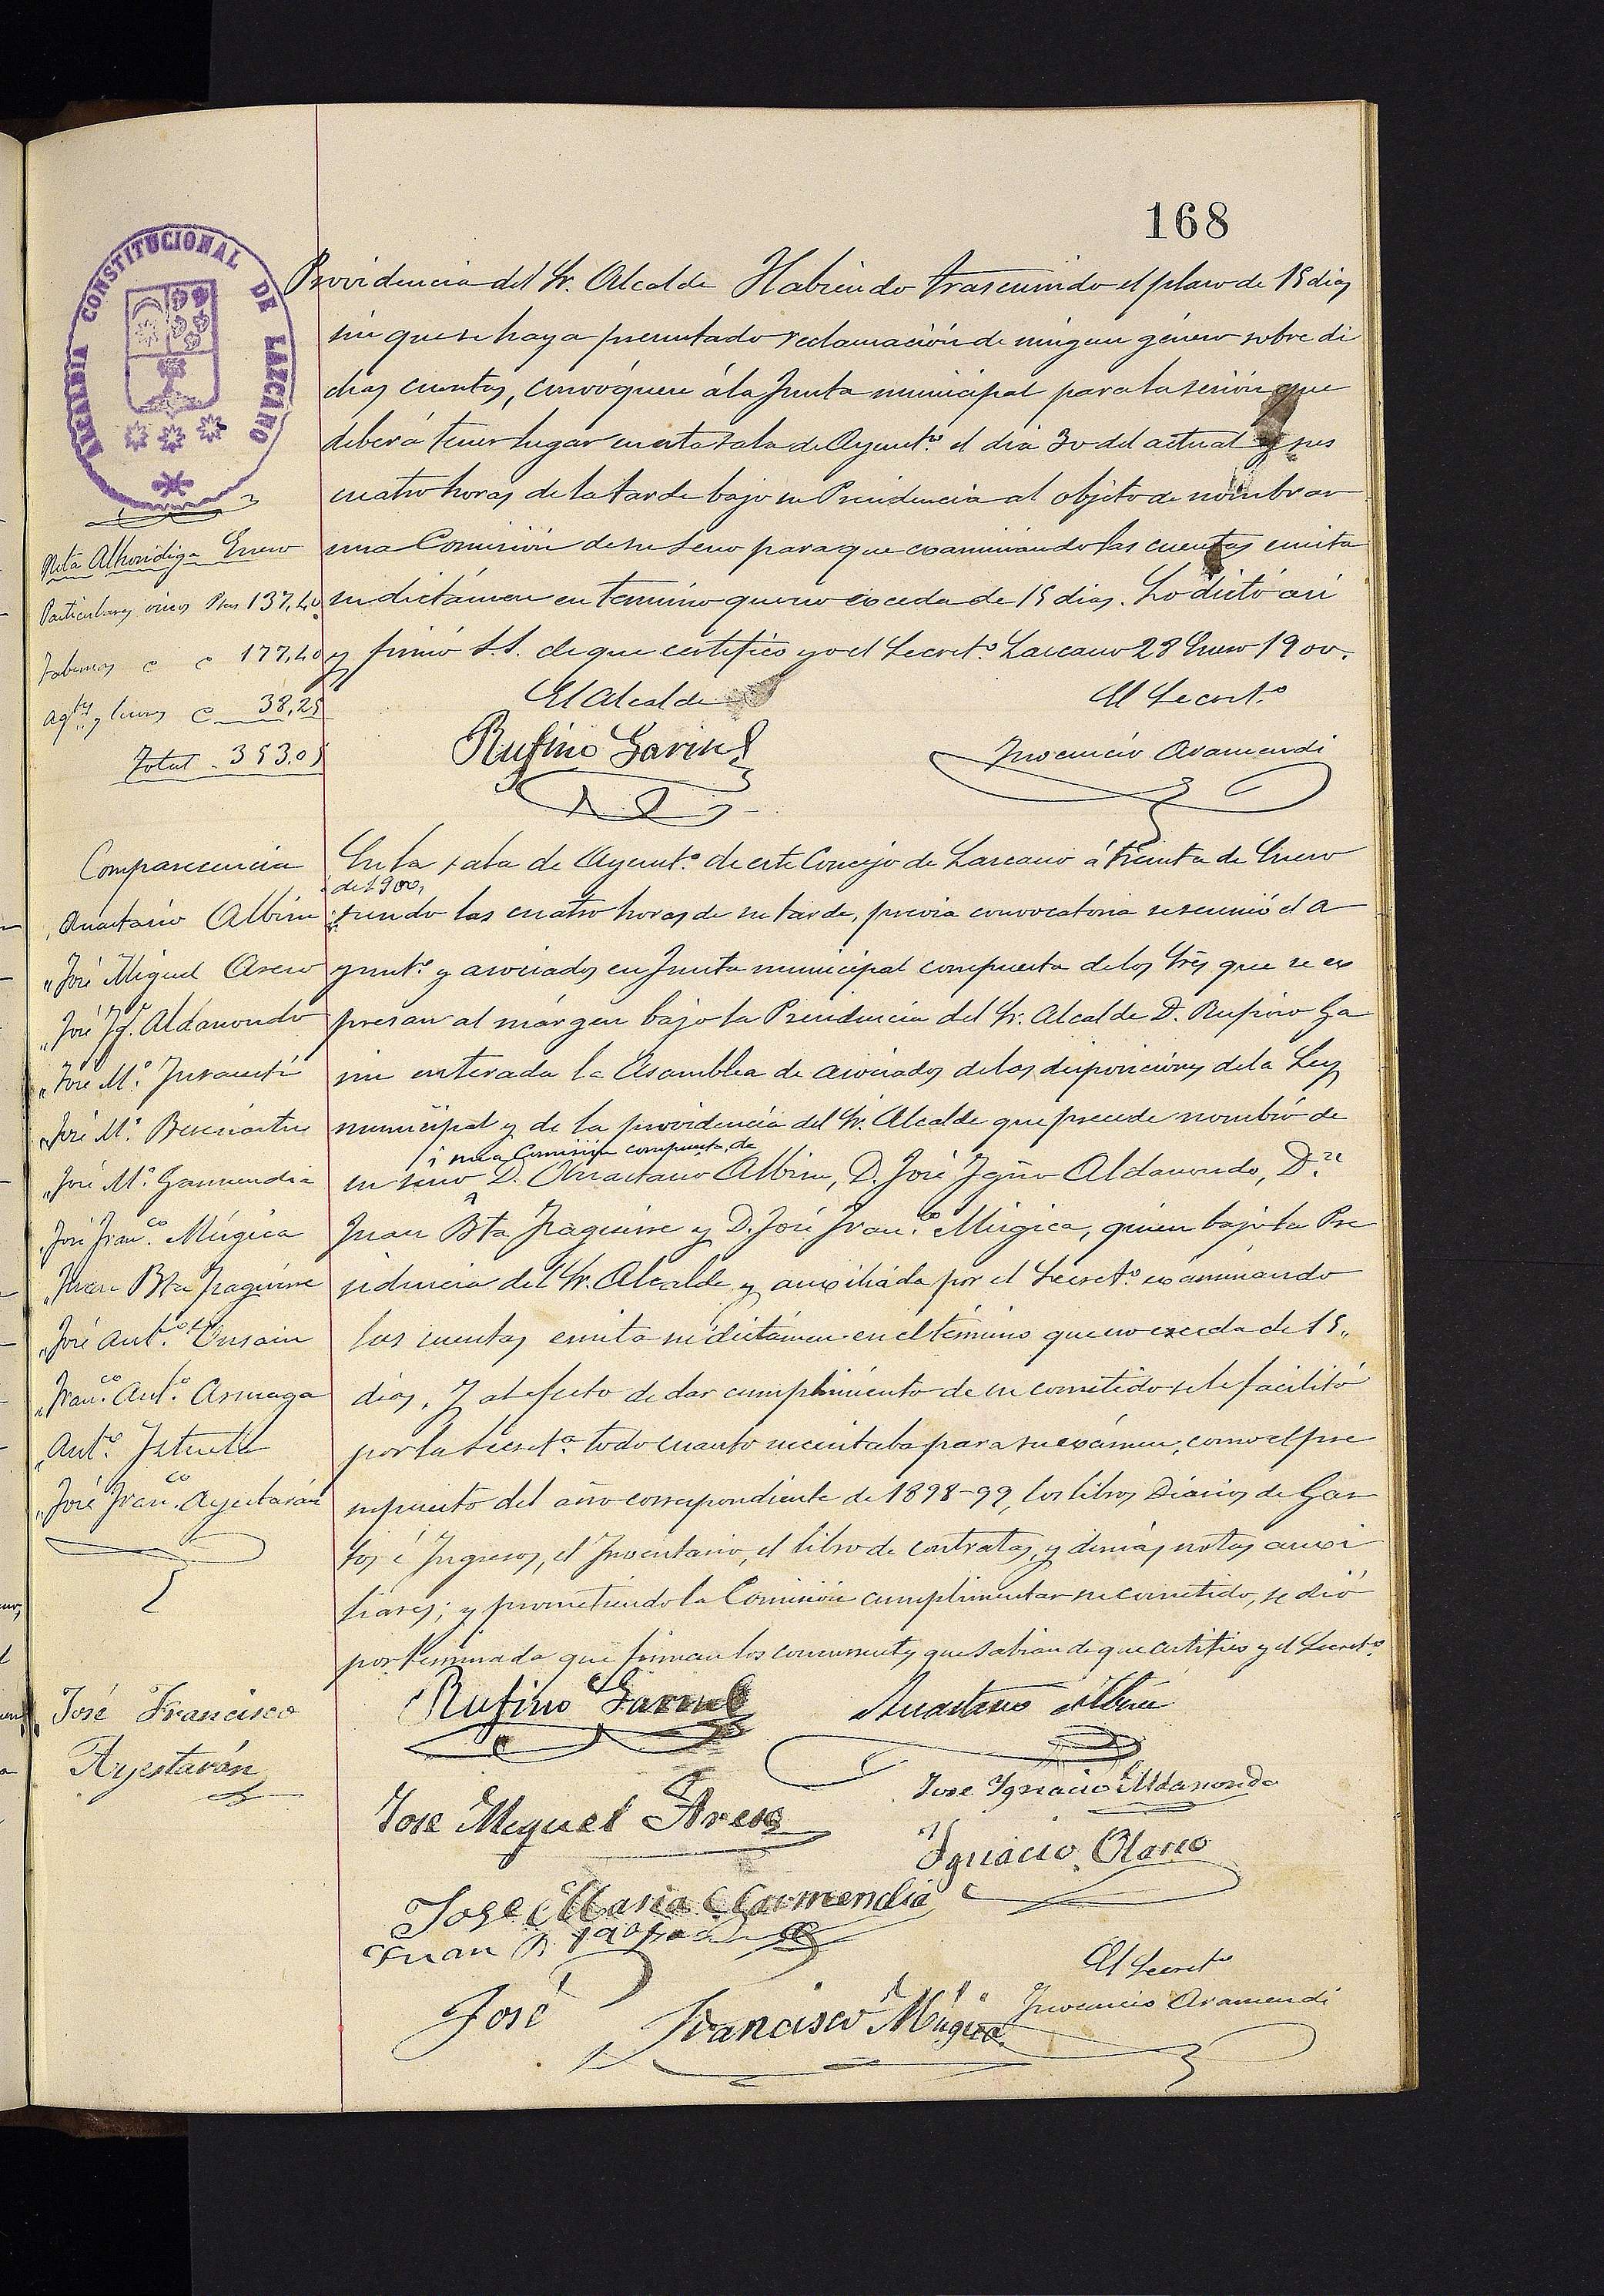 168
ALCALDIA CONSTITUCIONAL DE LAZCANO
Providencia del Sr. Alcalde Habiendo trascurrido el plazo de 15 dias
sin que se haya presentado reclamación de ningun género sobre di
chas cuentas, convóquese á la Junta municipal para la sesión que
deberá tener lugar en esta sala de Ayunt.º el dia 30 del actual y sus
cuatro horas de la tarde bajo su Presidencia al objeto de nombrar
una Comisión de su seno para que examinando las cuentas emita
su dictámen en término que no exceda de 15 dias. Lo dictó asi
y firmó S.S. de que certifico yo el Secret.º Lazcano 28 Enero 1900.
El Alcalde
El Secret.º
Rufino Garin
Inocencio Aramendi
Nota Alhondiga Enero
Particulares vinos Ptas 137,40
Tabernas " " 177,40
Agtes y licores " 38,25
Total - 353.05
Comparecencia
Anastasio Albisu
" José Miguel Aseno
" José Ig.º Aldanondo
" José M.ª Insausti
" José M.ª Bericiartua
" José M.ª Garmendia
" José Fran.co Múgica
" Juan Bta Iraguirre
" José Ant.º Unsain
" Fran.co Ant.º Arruaga
" Ant.º Iztueta
" José Fran.co Ayestarán
En la sala de Ayunt.º de este Concejo de Lazcano á treinta de Enero
de 1900,
siendo las cuatro horas de su tarde, previa convocatoria se reunió el A
yunt.º y asociados en Junta municipal compuesta de los Sres que se ex
presan al márgen bajo la Presidencia del Sr. Alcalde D. Rufino Ga
rin enterada la Asamblea de asociados de las disposiciónes de la Ley
municipal y de la providencia del Sr. Alcalde que precede nombró de
á una Comisión compuesta de
su seno D. Anastasio Albisu, D. José Igño Aldanondo, D.n
Juan Bta Iraguirre y D. José Fran.co Múgica, quien bajo la Pre
sidencia del Sr. Alcalde y auxiliada por el Secret.º examinando
las cuentas emita su dictámen en el término que no exceda de 15
dias. Y al efecto de dar cumplimiento de su cometido se le facilitó
por la Secret.ª todo cuanto necesitaba para su exámen, como el pre
supuesto del año correspondiente de 1898-99, los libros Diarios de Gas
tos é Ingresos, el Inventario, el libro de contratas, y demás notas auxi
liares; y prometiendo la Comisión cumplimentar su cometido, se dió
por terminada que firman los concurrentes que sabian de que certifico yo el Secret.º
Rufino Garin
Anastasio Albisu
José Francisco
Ayestarán
Jose Ignacio Aldanondo
Jose Miguel Aseno
Ignacio Olano
Jose Maria Garmendia
Juan B
El Secret.º
Inocencio Aramendi
José Francisco Múgica